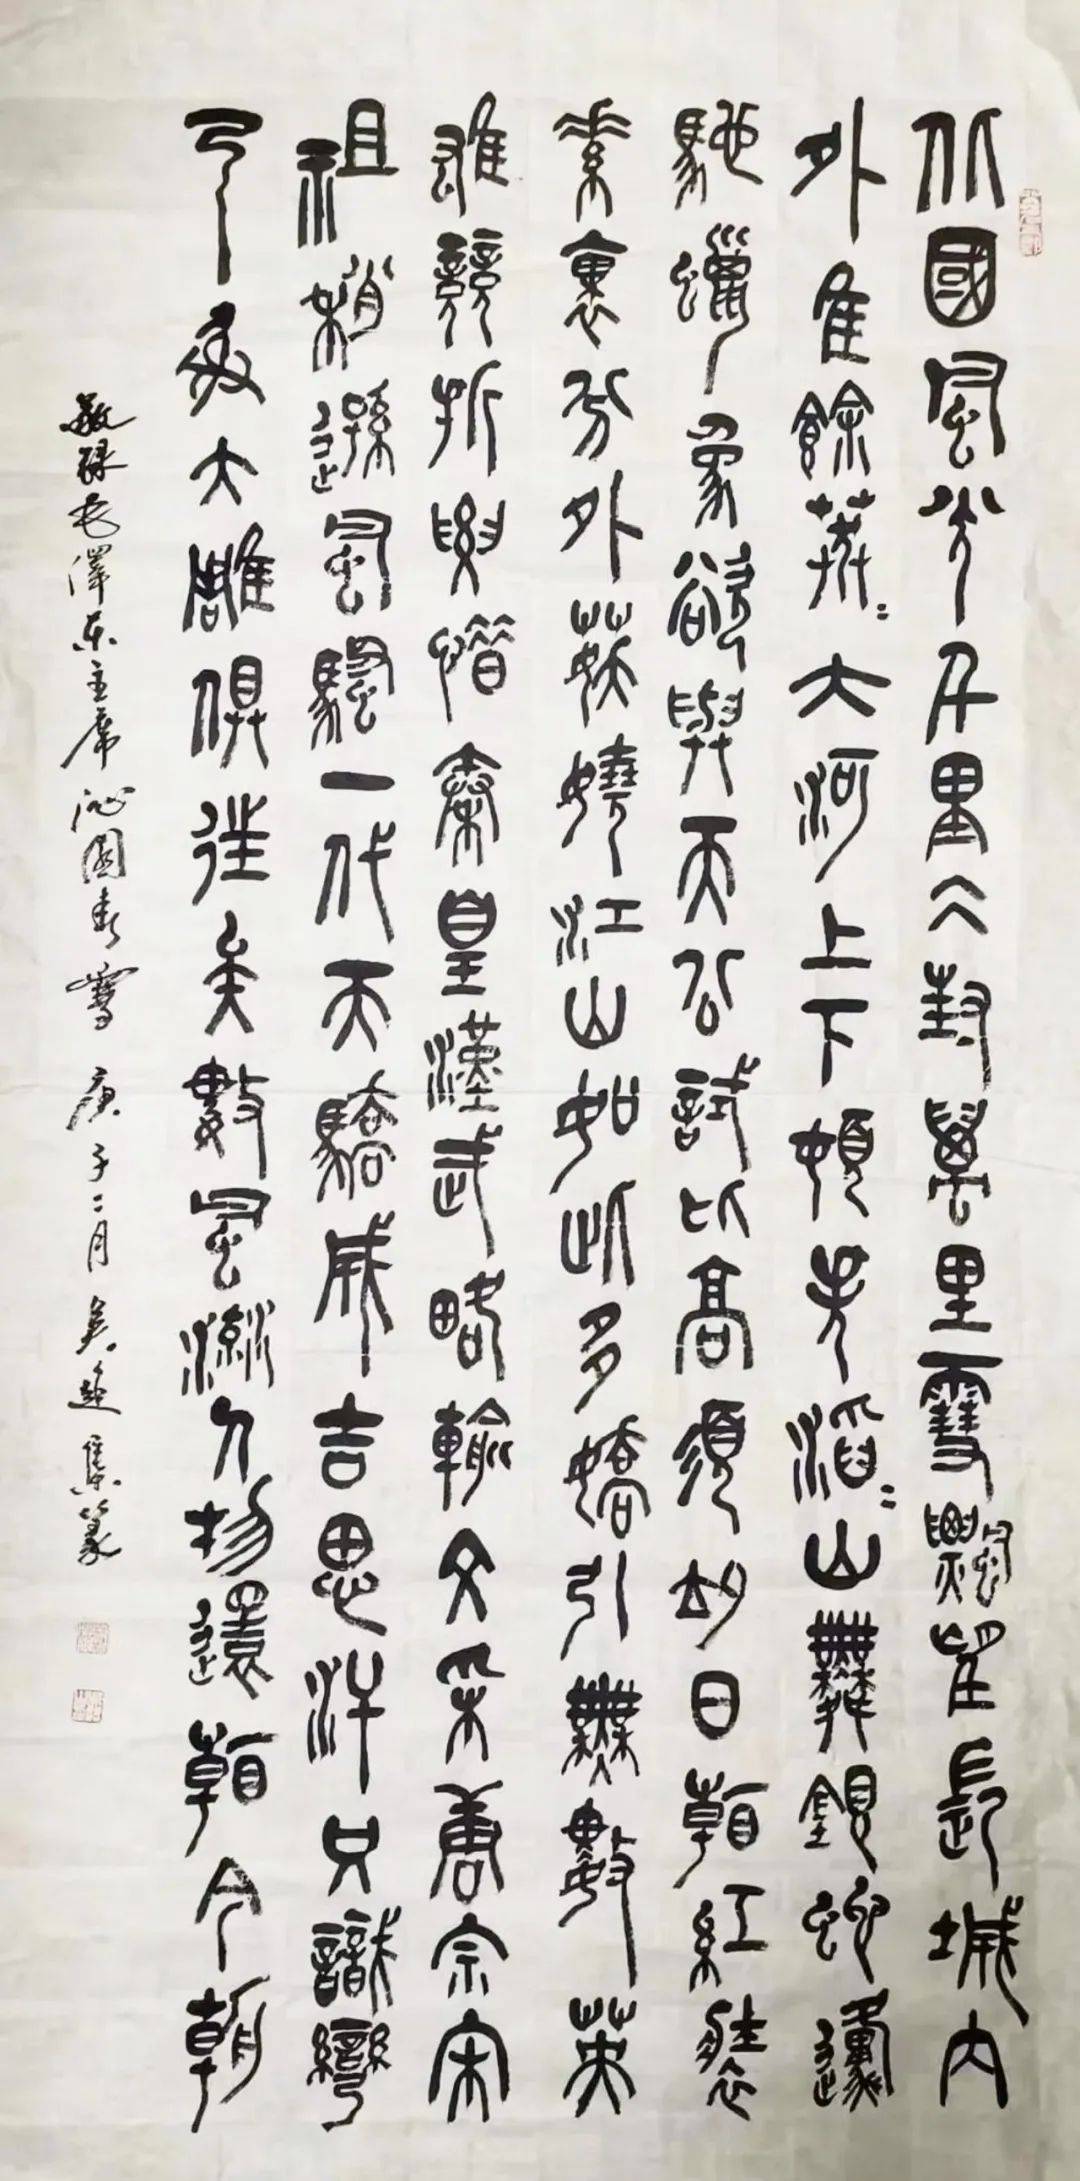 北國風光千里冰封萬里雪飄望長城內
外惟餘莽莽大河上下頓失滔滔山舞銀蛇原
馳蠟象欲與天公試比高須晴日看紅裝
素裹分外妖嬈江山如此多嬌引無數英
雄競折腰惜秦皇漢武略輸文采唐宗宋
祖稍遜風騷一代天驕成吉思汗只識彎
弓射大雕俱往矣數風流人物還看今朝
敬録毛澤東主席沁園春雪 庚子二月 吳 集篆